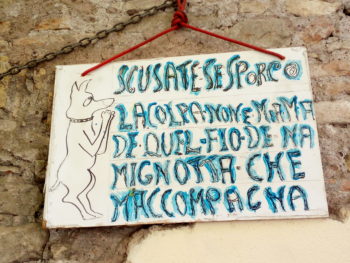 SCUSATE SE SPORCO
LA COLPA NON E MIA MA
DE QUEL-FIO-DE NA
MIGNOTTA CHE
MACCOMPAGNA